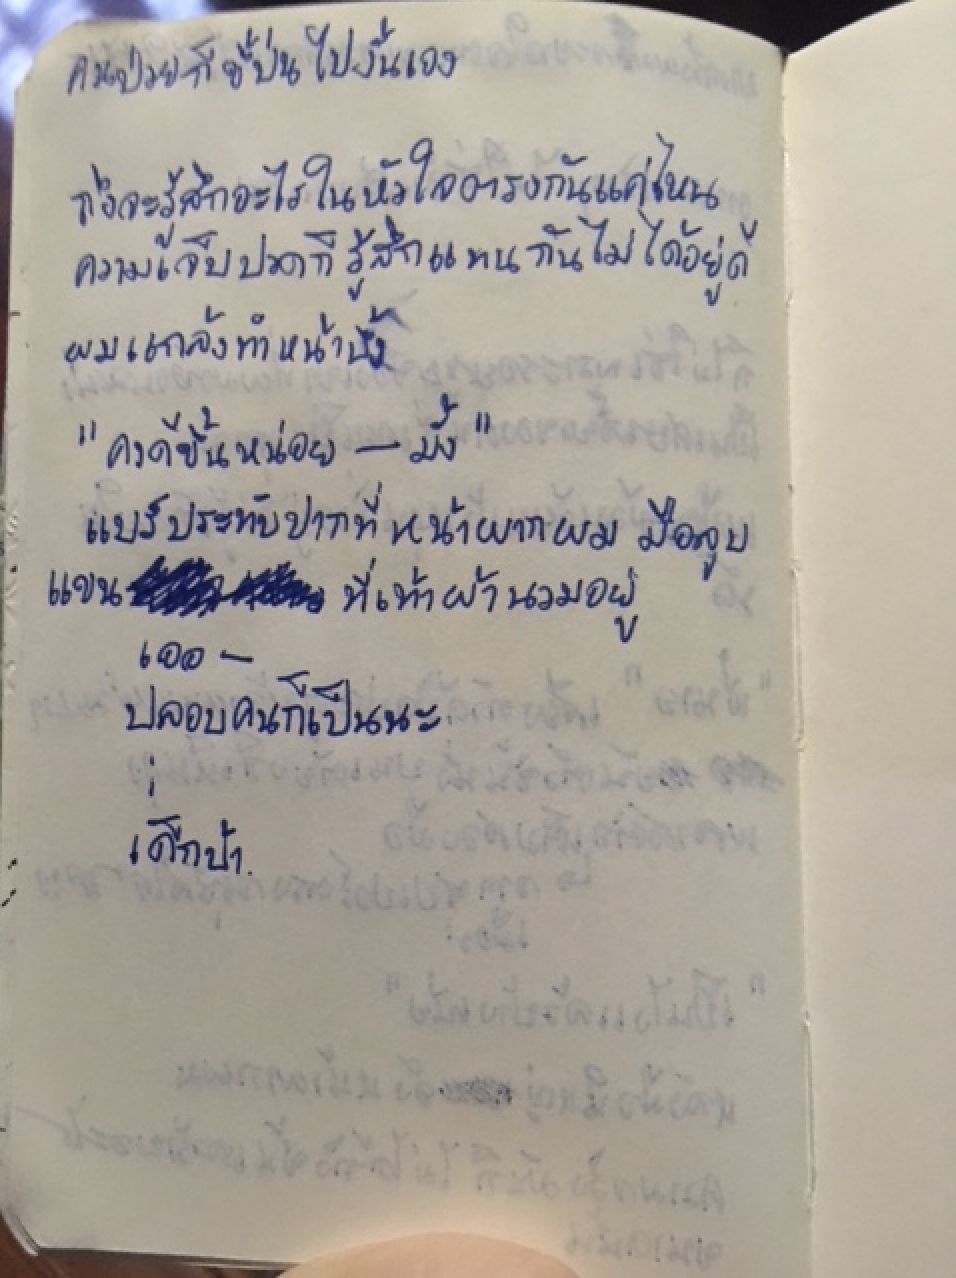 คนป่วยก็ขี้บ่นไปงั้นเอง
ถึงจะรู้สึกอะไรในหัวใจตรงกันแค่ไหน
ความเจ็บปวดก็รู้สึกแทนกันไม่ได้อยู่ดี
ผมแกล้งทำหน้าบึ้ง
"คงดีขึ้นหน่อย — มั้ง"
แบร์ประทับปากที่หน้าผากผม มือลูบ
แขน ที่เท้าผ้านวมอยู่
เออ —
ปลอบคนก็เป็นนะ
เด็กบ้า.